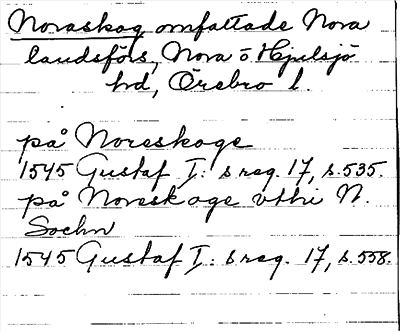 Noraskog omfattade Nora
landsförs, Nora o Hjulsjö
hd, Örebro l.
på Noreskoge
1545 Gustaf I: s reg. 17, s. 535.
på Noreskoge vthi N.
Sochn
1545 Gustaf I: s reg. 17, s. 558.